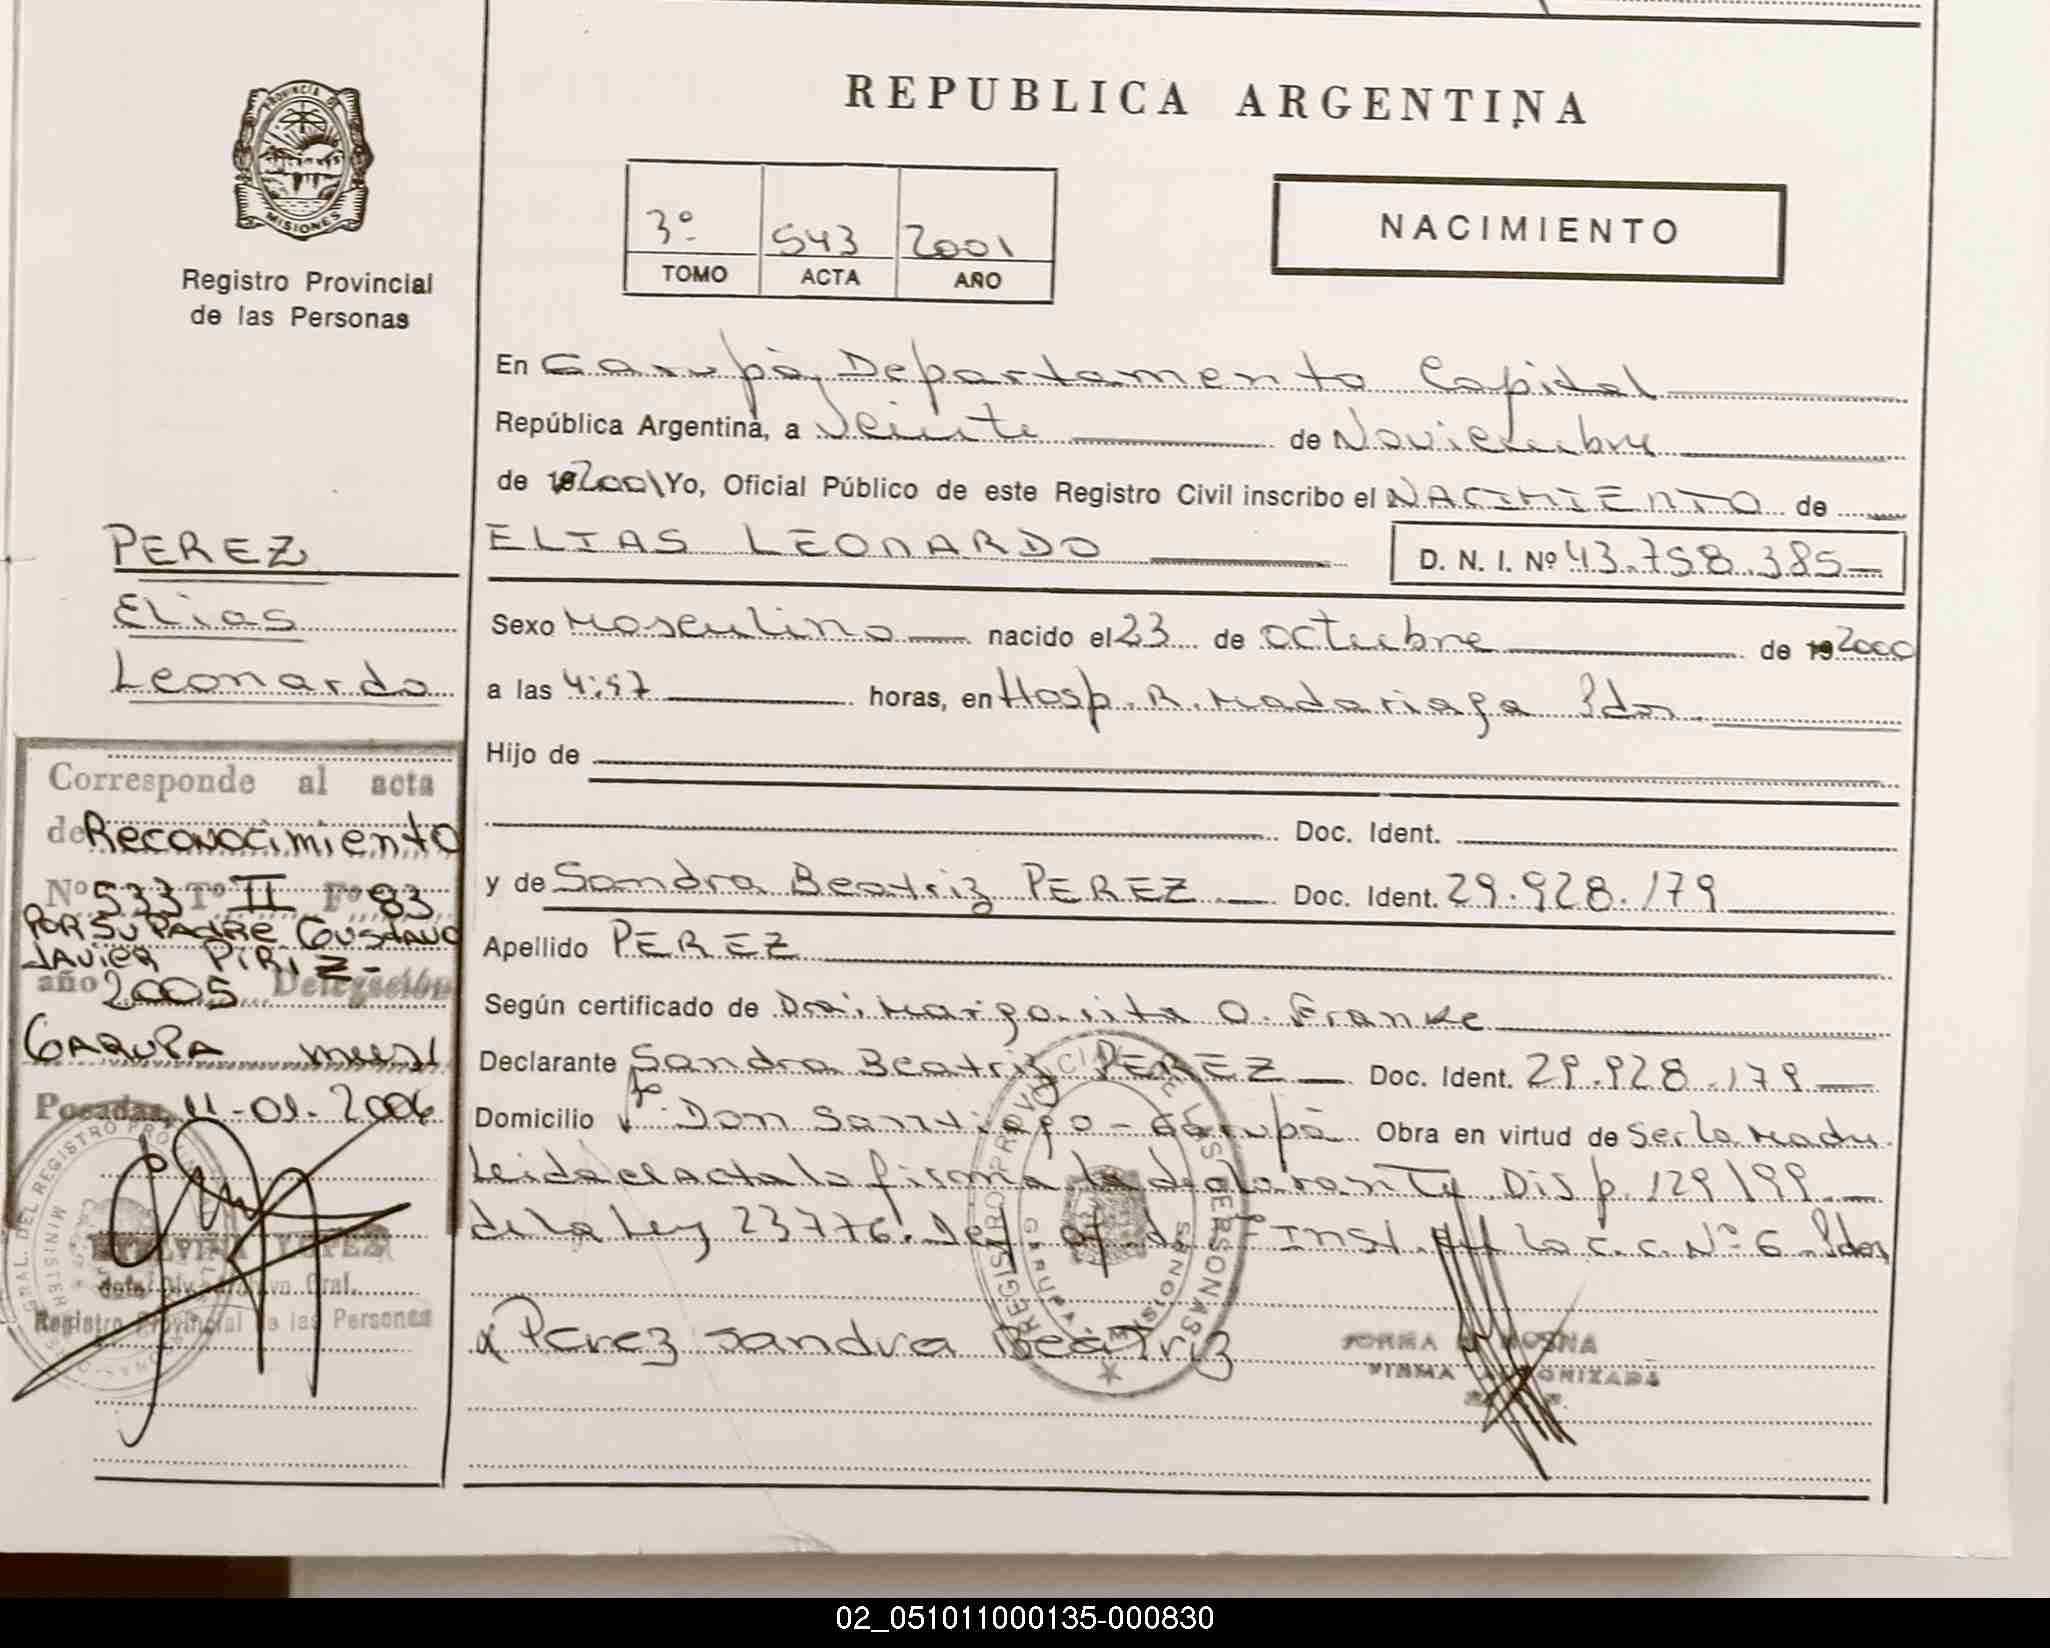 REPUBLICA ARGENTINA
PROVINCIA DE
MISIONES
Registro Provincial
de las Personas
3º 543 2001
TOMO ACTA AÑO
NACIMIENTO
En Garupá, Departamento Capital
República Argentina, a Veinte de Noviembre
de 192001 Yo, Oficial Público de este Registro Civil inscribo el NACIMIENTO de
ELIAS LEONARDO D. N. I. Nº 43.758.385
PEREZ
Elias
Leonardo
Sexo Masculino nacido el 23 de octubre de 192000
a las 4:57 horas, en Hosp. R. Madariaga Pdas.
Hijo de
Doc. Ident.
y de Sandra Beatriz PEREZ Doc. Ident. 29.928.179
Apellido PEREZ
Según certificado de Dra: Margarita O. Franke
Declarante Sandra Beatriz PEREZ Doc. Ident. 29.928.179
Domicilio Don Santiago - Garupá Obra en virtud de Ser la Madre
Leida el acta la firma la declarante Disp. 129/99
de la Ley 23776. de Inst. la C.C. Nº 6 Pdas
x Perez Sandra Beatriz
NORMA MOSNA
FIRMA AUTORIZADA
REGISTRO PROVINCIAL DE LAS PERSONAS
GARUPA MISIONES
Corresponde al acta
de Reconocimiento
Nº 533 Tº II Fº 83
POR SU PADRE GUSTAVO
JAVIER PIRIZ-
año 2005 Delegación
GARUPA
Posadas, 11-01-2006
YEPEZ
Registro Provincial de las Personas
02_051011000135-000830